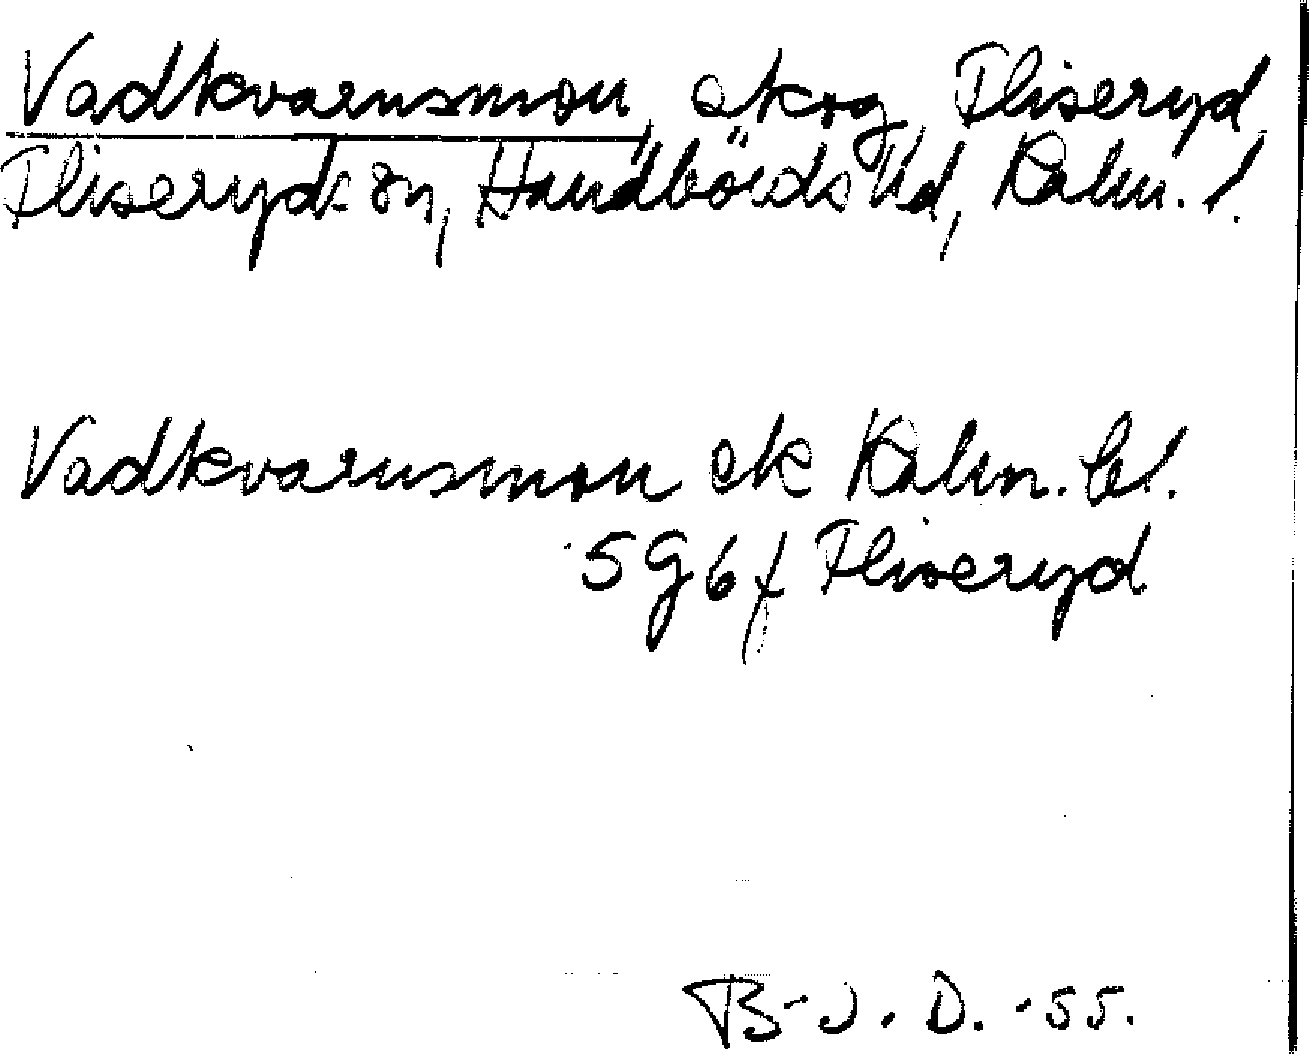 Vadkvarnsmon, skog, Fliseryd
Fliseryds sn, Handbörds hd, Kalm. l.
Vadkvarnsmon ek Kalm. bl.
5 G 6 f Fliseryd
B-J. D. -55.